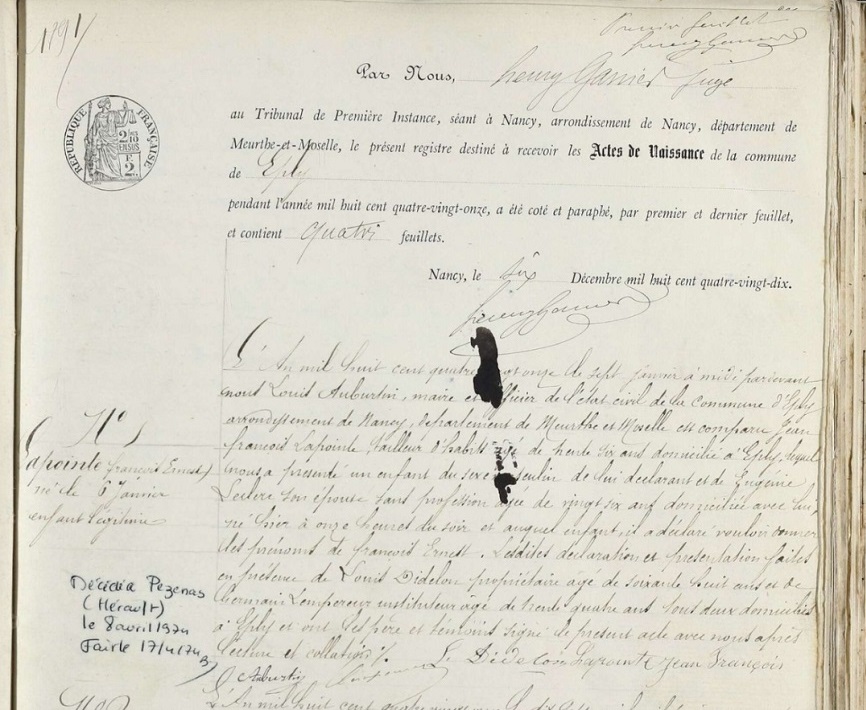 1891
Premier feuillet
Par Nous, henry Garnier Juge
RÉPUBLIQUE FRANÇAISE
2/10
EN SUS
F.
2
au Tribunal de Première Instance, séant à Nancy, arrondissement de Nancy, département de
Meurthe-et-Moselle, le présent registre destiné à recevoir les Actes de Naissance de la commune
de Eply
pendant l'année mil huit cent quatre-vingt-onze, a été coté et paraphé, par premier et dernier feuillet,
et contient quatre feuillets.
Nancy, le six Décembre mil huit cent quatre-vingt-dix.
L'An mil huit cent quatre onze le sept janvier à midi pardevant
nous Louis Auburtin, maire et officier de l'état civil de la Commune d'Eply
arrondissement de Nancy, département de Meurthe et Moselle est comparu Jean
françois Lapointe tailleur d'habits âgé de trente six ans domicilié à Eply, lequel
nous a présenté un enfant du sexe masculin de lui déclarant et de Eugénie
Leclerc son épouse sans profession âgée de vingt six ans domiciliée avec lui,
né hier à onze heures du soir et auquel enfant il a déclaré vouloir donner
les prénoms de françois Ernest. Lesdites déclaration et présentation faites
en présence de Louis Didelon propriétaire âgé de soixante huit ans et de
Germain Lempereur instituteur âgé de trente quatre ans tous deux domiciliés
à Eply et ont les père et témoins signé le présent acte avec nous après
lecture et collation
Auburtin L. Didelon Lapointe Jean François
N° 1
Lapointe françois Ernest
né le 6 janvier
enfant légitime
Décédé à Pézenas
(Hérault)
le 8 avril 1974
Fait le 17/4/74
L'An mil huit cent quatre vingt